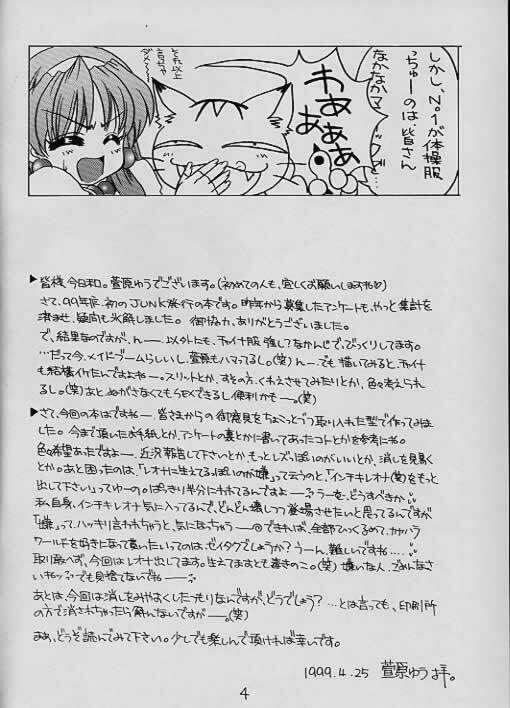 しかし、No1が体操服
っちゅーのは、皆さん
なかなかマニアックッで…
わあぁぁ
あぁ
それ以上
言っちゃ
ダメ〜っ
▶皆様、今日和。萱原ゆうでございます。(初めての人も、宜しくお願いしますね♡)
さて、99年度、初のJUNK発行の本です。昨年から募集したアンケートも、やっと集計を
済ませ、疑問も氷解しました。御協力、ありがとうございました。
で、結果なのですが、んー…以外にも、チャイナ服強し?なカンジで、びっくりしてます。
…だって今、メイドブームらしいし、萱原もハマってるし。(笑)んー…でも描いてみると、チャイナ
も結構イケたんですよねー。スリットとか、すその方、くわえさせてみたりとか、色々考えられ
るし。(笑)あと、ぬがさなくてもSEXできるし便利かもー。(笑)
▶さて、今回の本はですねー、皆さまからの御意見をちょこっとづつ取り入れた型で作ってみま
した。今まで頂いたお手紙とか、アンケートの裏とかに書いてあったコトとかを参考にね。
色々希望あったですよー…近況報告して下さいとか、もっとレズっぽいのがいいとか、消しを見易く
とか。あと困ったのは、「レオナに生えてるっぽいのが嫌」って云うのと、「インチキレオナ(笑)をもっと
出して下さい」ってゆーの。ぱっきり半分にわれてるんですよー…うーむ、どうすべきか
私自身、インチキレオナ気に入ってるんで、どんどん嬉しつつ登場させたいと思ってるんですが
「嫌」って、ハッキリ言われちゃうと、気になっちゃうー できれば、全部ひっくるめて、カヤハラ
ワールドを好きになって貰いたいってのは、ゼイタクでしょうか?うーん、難しいですね…
取り敢へず、今回はレオナ出してます。生えてますとも毒きのこ。(笑)嫌いな人、ごみんなさ
いねッ でも見捨てないでねー
あとは、今回は消しをみやすくしたつもりなんですが、どうでしょう?…とは言っても、印刷所
の方で消されちゃったら解んないですがー。(笑)
まぁ、どうぞ読んでみて下さい。少しでも楽しんで頂ければ幸いです。
1999.4.25 萱原ゆう拝。
4